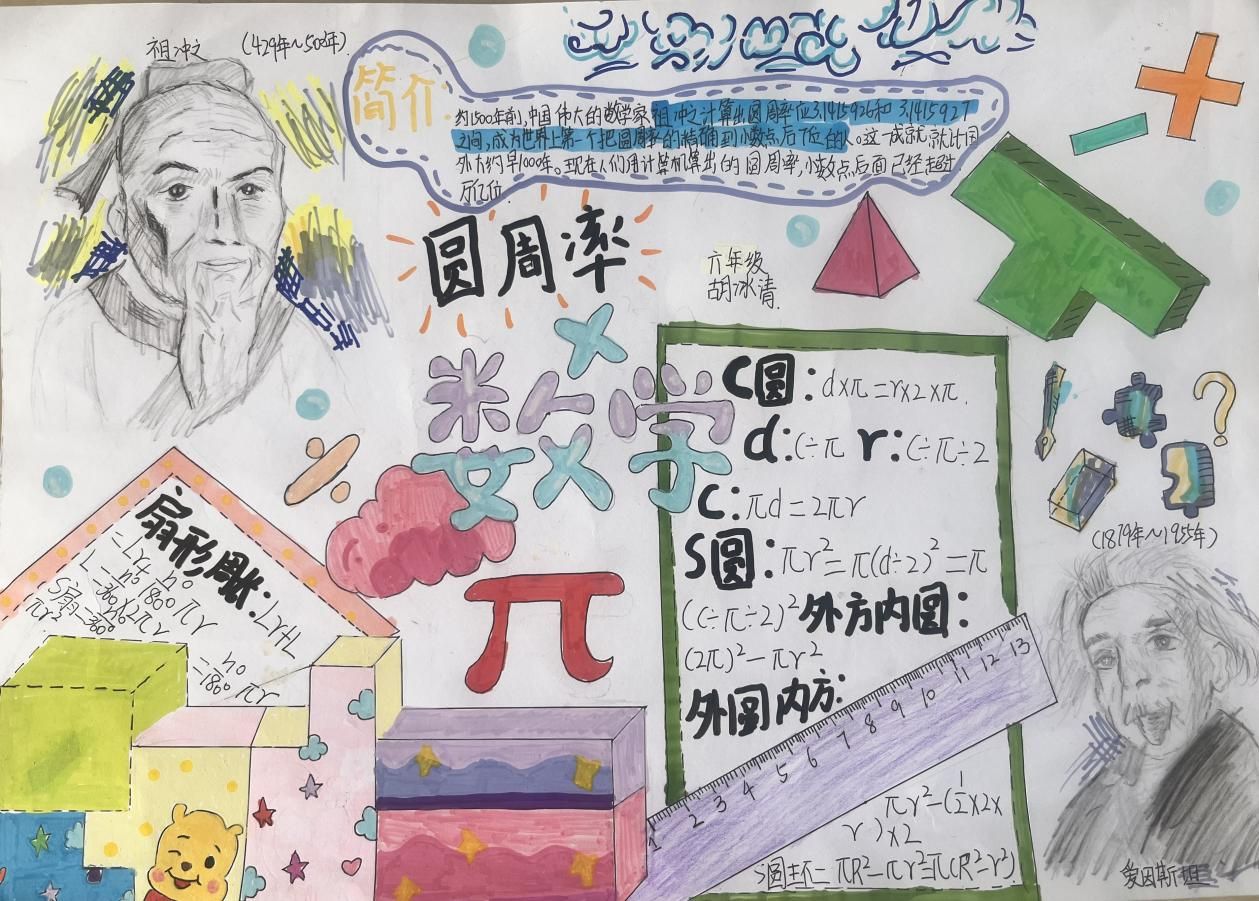 祖冲之 (429年~500年)
简介
约1500年前,中国伟大的数学家祖冲之计算出圆周率应3.1415926和3.1415927
之间,成为世界上第一个把圆周率的精确到小数点后7位的人。这一成就就比国
外大约早1000年。现在人们用计算机算出的圆周率,小数点后面已经超过
万亿位
圆周率
六年级
胡冰清
数学
C圆:d×π=r×2×π
d:C÷π r:C÷π÷2
C:πd=2πr
S圆:πr²=π(d÷2)²=π
(C÷π÷2)²外方内圆:
(2π)²-πr²
外圆内方:
πr²-(½×2×
r)×2
S圆环=πR²-πr²=π(R²-r²)
扇形周长:
π
1 2 3 4 5 6 7 8 9 10 11 12 13
?
(1879年~1955年)
爱因斯坦